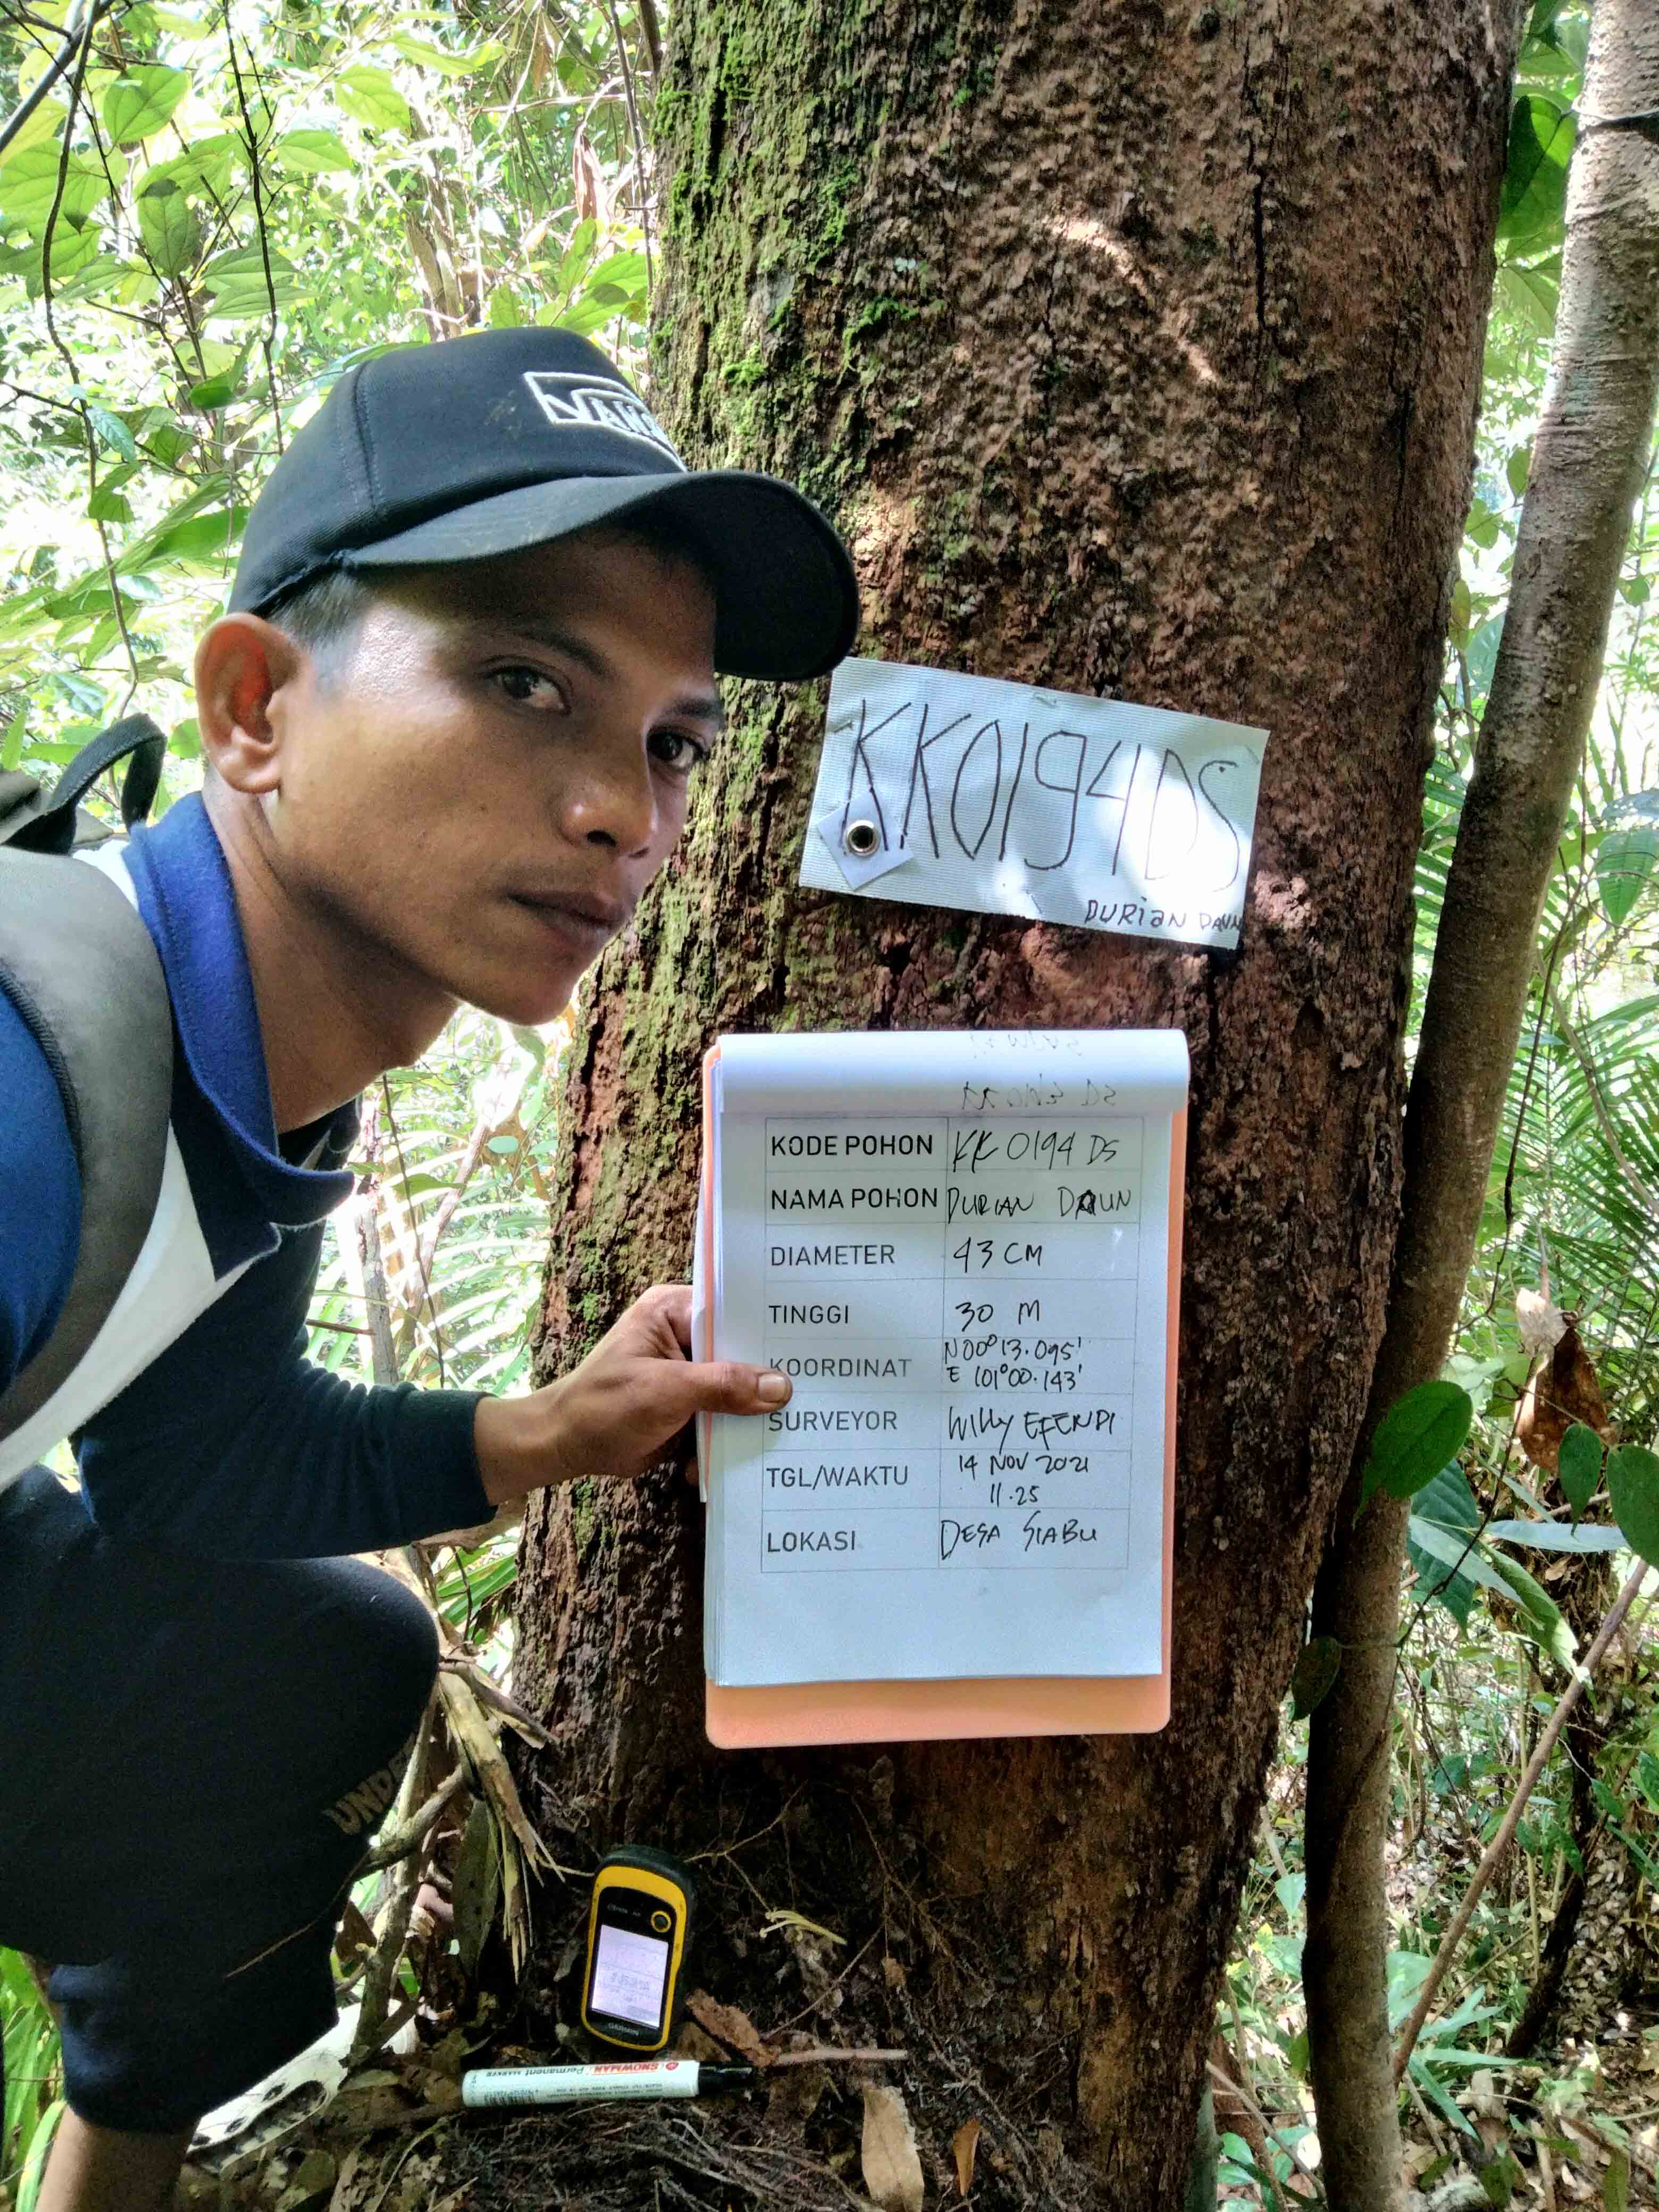 VANS
KK0194DS
DURiaN DAUN
KODE POHON KK 0194 DS
NAMA POHON DURIAN DAUN
DIAMETER 43 CM
TINGGI 30 M
KOORDINAT N00°13.095'
E 101°00.143'
SURVEYOR Willy EFENDI
TGL/WAKTU 14 NOV 2021
11.25
LOKASI DESA SIABU
GARMIN
SNOWMAN
Permanent MARKER